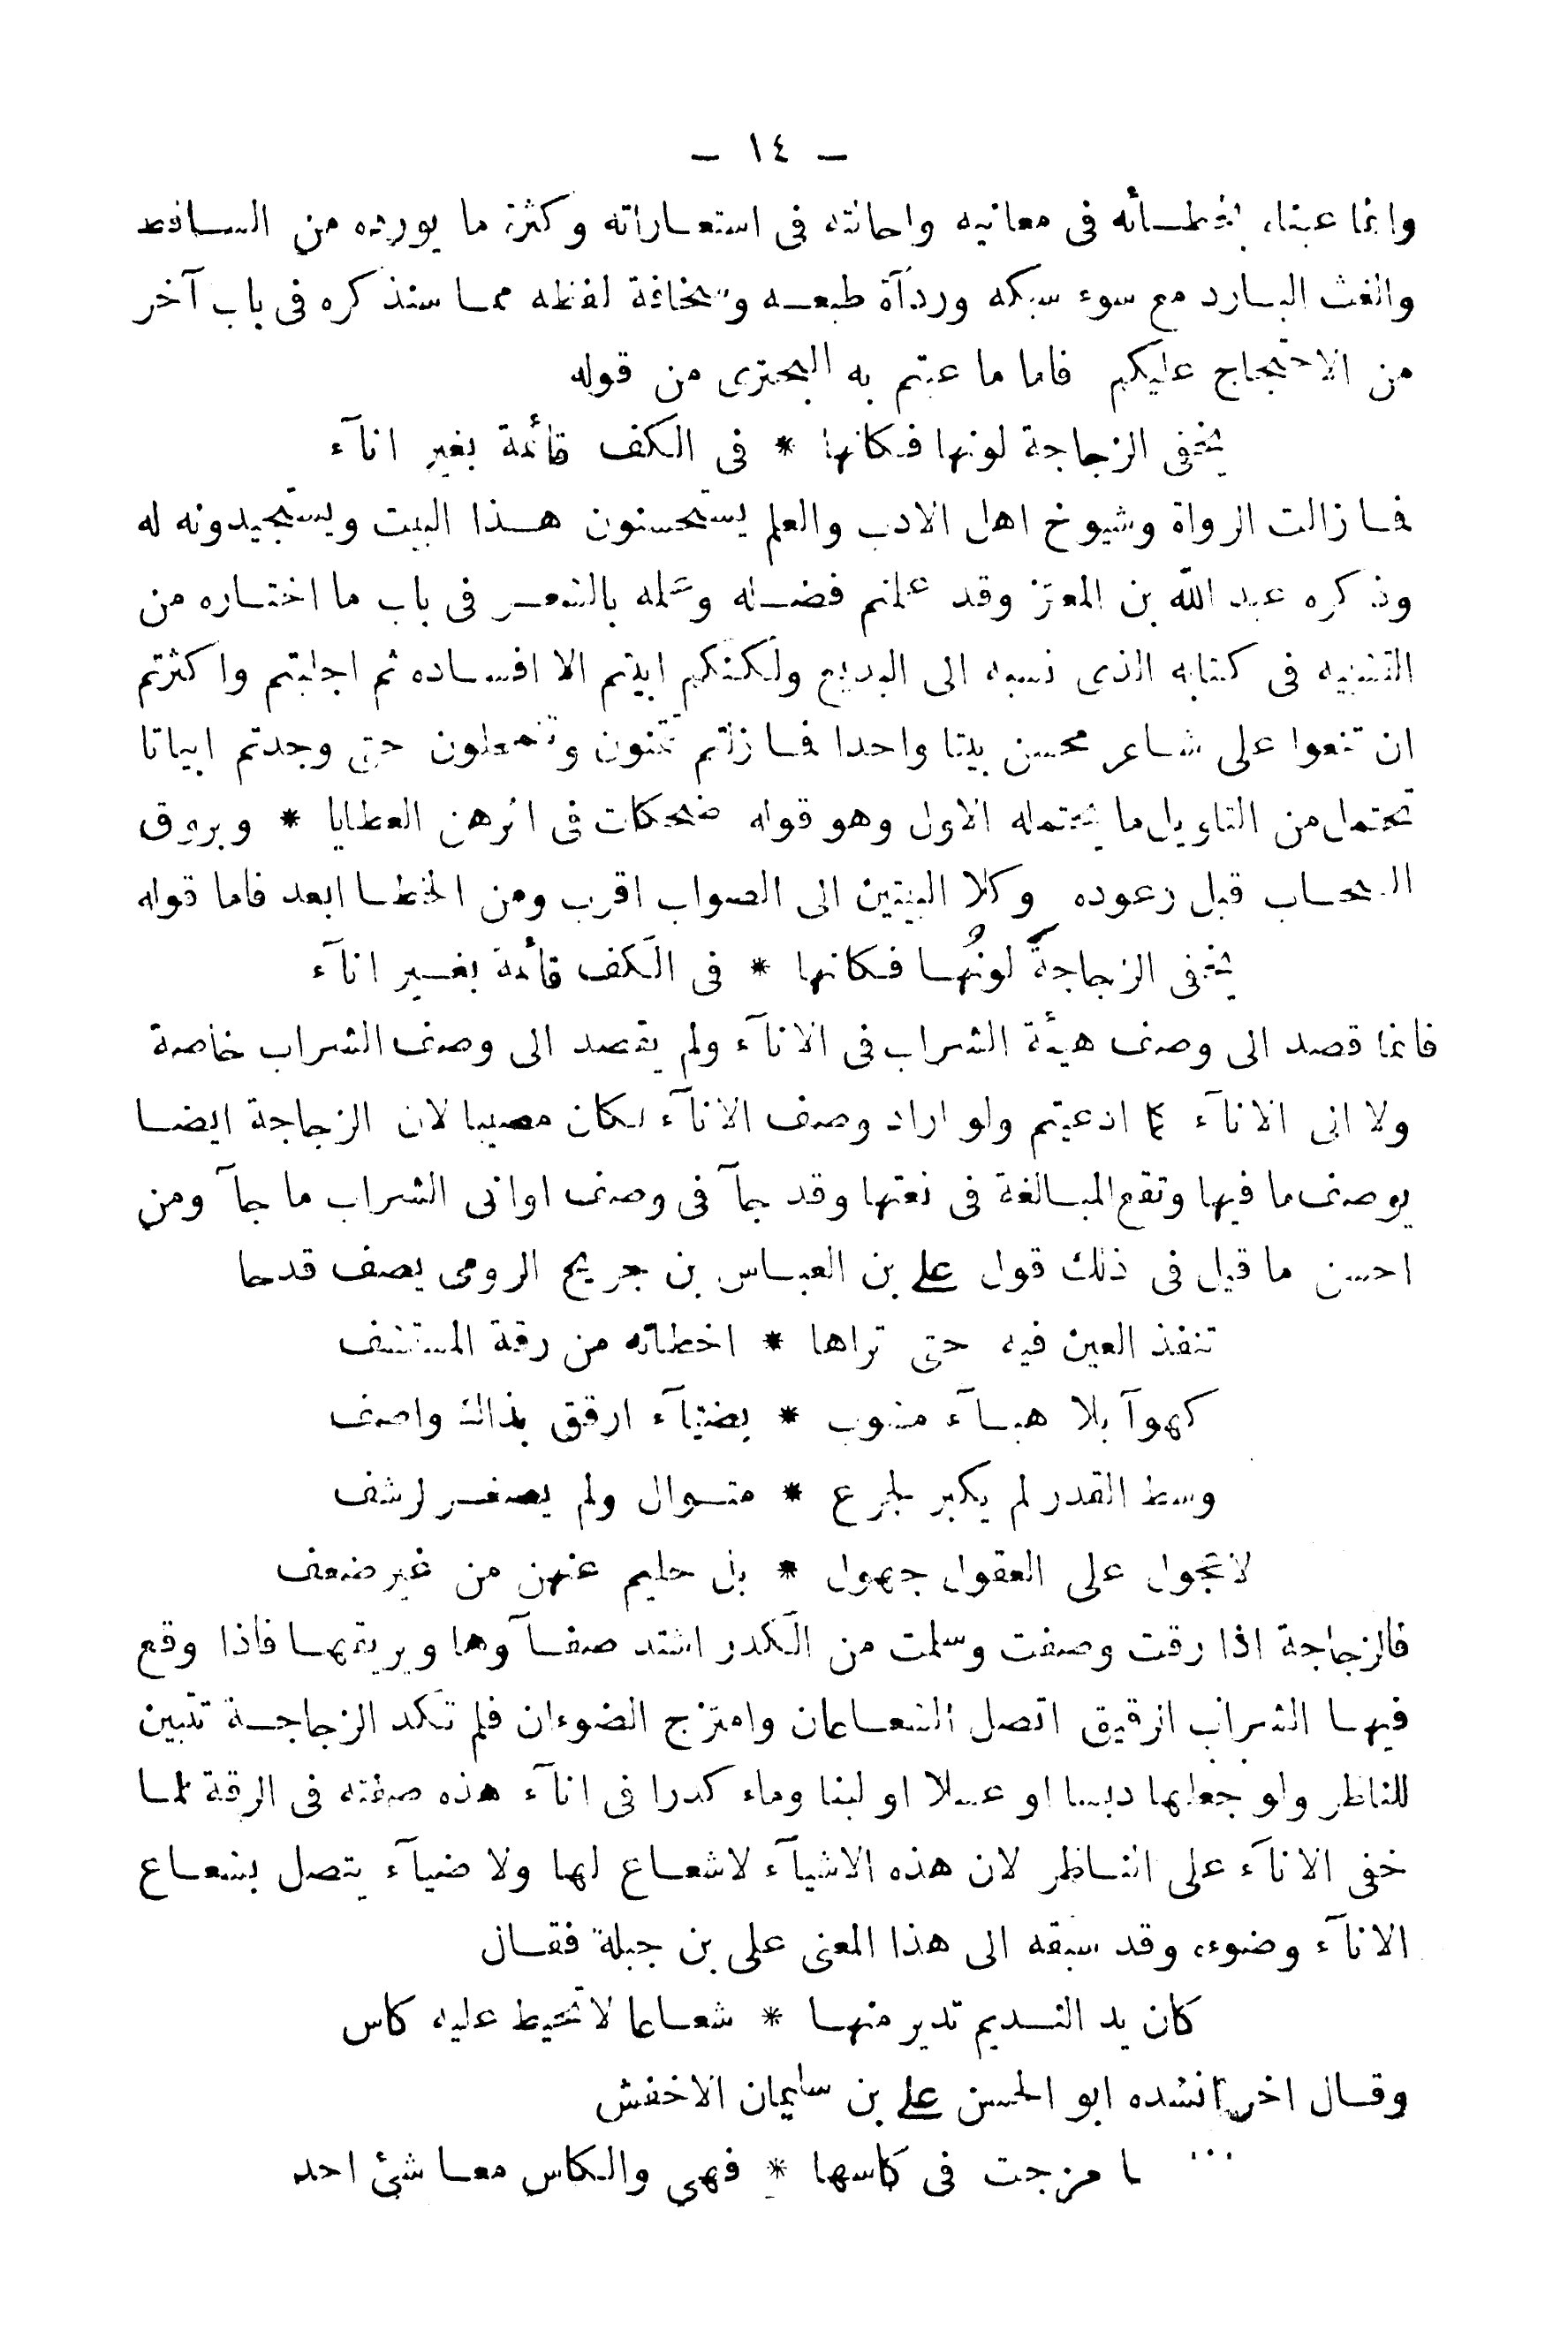 — ١٤ —
وانما عبناه بخطائه فى معانيه واحالته فى استعاراته وكثرة ما يورده من الساقط
والغث البارد مع سوء سبكه وردآة طبعه وسخافة لفظه مما سنذكره فى باب آخر
من الاحتجاج عليكم فاما ما عبتم به البحترى من قوله
يخفى الزجاجة لونها فكانها * فى الكف قائمة بغير انآء
فما زالت الرواة وشيوخ اهل الادب والعلم يستحسنون هذا البيت ويستجيدونه له
وذكره عبد الله بن المعتز وقد علمتم فضله وعلمه بالشعر فى باب ما اختاره من
التشبيه فى كتابه الذى نسبه الى البديع ولكنكم ابيتم الا افساده ثم اجلبتم واكثرتم
ان تنعوا على شاعر محسن بيتا واحدا فما زلتم تمنون وتتمحلون حتى وجدتم ابياتا
تحتمل من التاويل ما يحتمله الاول وهو قوله ضحكات فى اثرهن العطايا * وبروق
السحاب قبل رعوده وكلا البيتين الى الصواب اقرب ومن الخطا ابعد فاما قوله
يخفى الزجاجةَ لونُها فكانها * فى الكف قائمة بغير انآء
فانما قصد الى وصف هيئة الشراب فى الانآء ولم يقصد الى وصف الشراب خاصة
ولا الى الانآء كما ادعيتم ولو اراد وصف الانآء لكان مصيبا لان الزجاجة ايضا
يوصف ما فيها وتقع المبالغة فى نعتها وقد جآ فى وصف اوانى الشراب ما جآ ومن
احسن ما قيل فى ذلك قول على بن العباس بن جريح الرومى يصف قدحا
تنفذ العين فيه حتى تراها * اخطاته من رقة المستشف
كهوآ بلا هبآء مشوب * بضيآء ارقق بذاك واصف
وسط القدر لم يكبر لجرع * متوال ولم يصغر لرشف
لا تجول على العقول جهول * بل حليم عنهن من غير ضعف
فالزجاجة اذا رقت وصفت وسلمت من الكدر اشتد صفآوها وبريقها فاذا وقع
فيها الشراب الرقيق اتصل الشعاعان وامتزج الضوءان فلم تكد الزجاجة تتبين
للناظر ولو جعلها دبسا او عسلا او لبنا وماء كدرا فى انآء هذه صفته فى الرقة لما
خفى الانآء على الناظر لان هذه الاشيآء لا شعاع لها ولا ضيآء يتصل بشعاع
الانآء وضوءه وقد سبقه الى هذا المعنى على بن جبلة فقال
كان يد النديم تدير منها * شعاعا لا تحيط عليه كاس
وقال اخر انشده ابو الحسن على بن سليمان الاخفش
مزجت فى كاسها * فهى والكاس معا شئ احد